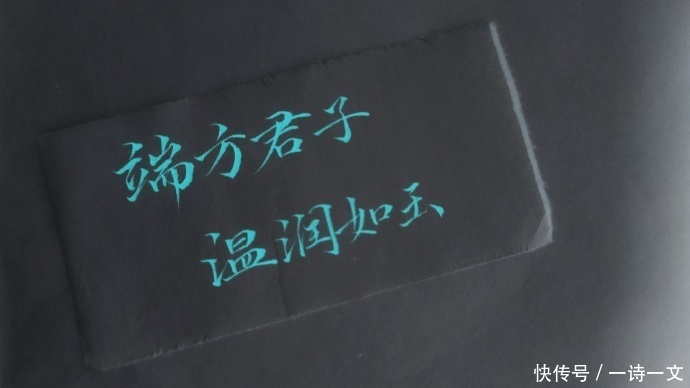 端方君子
温润如玉
快传号/一诗一文